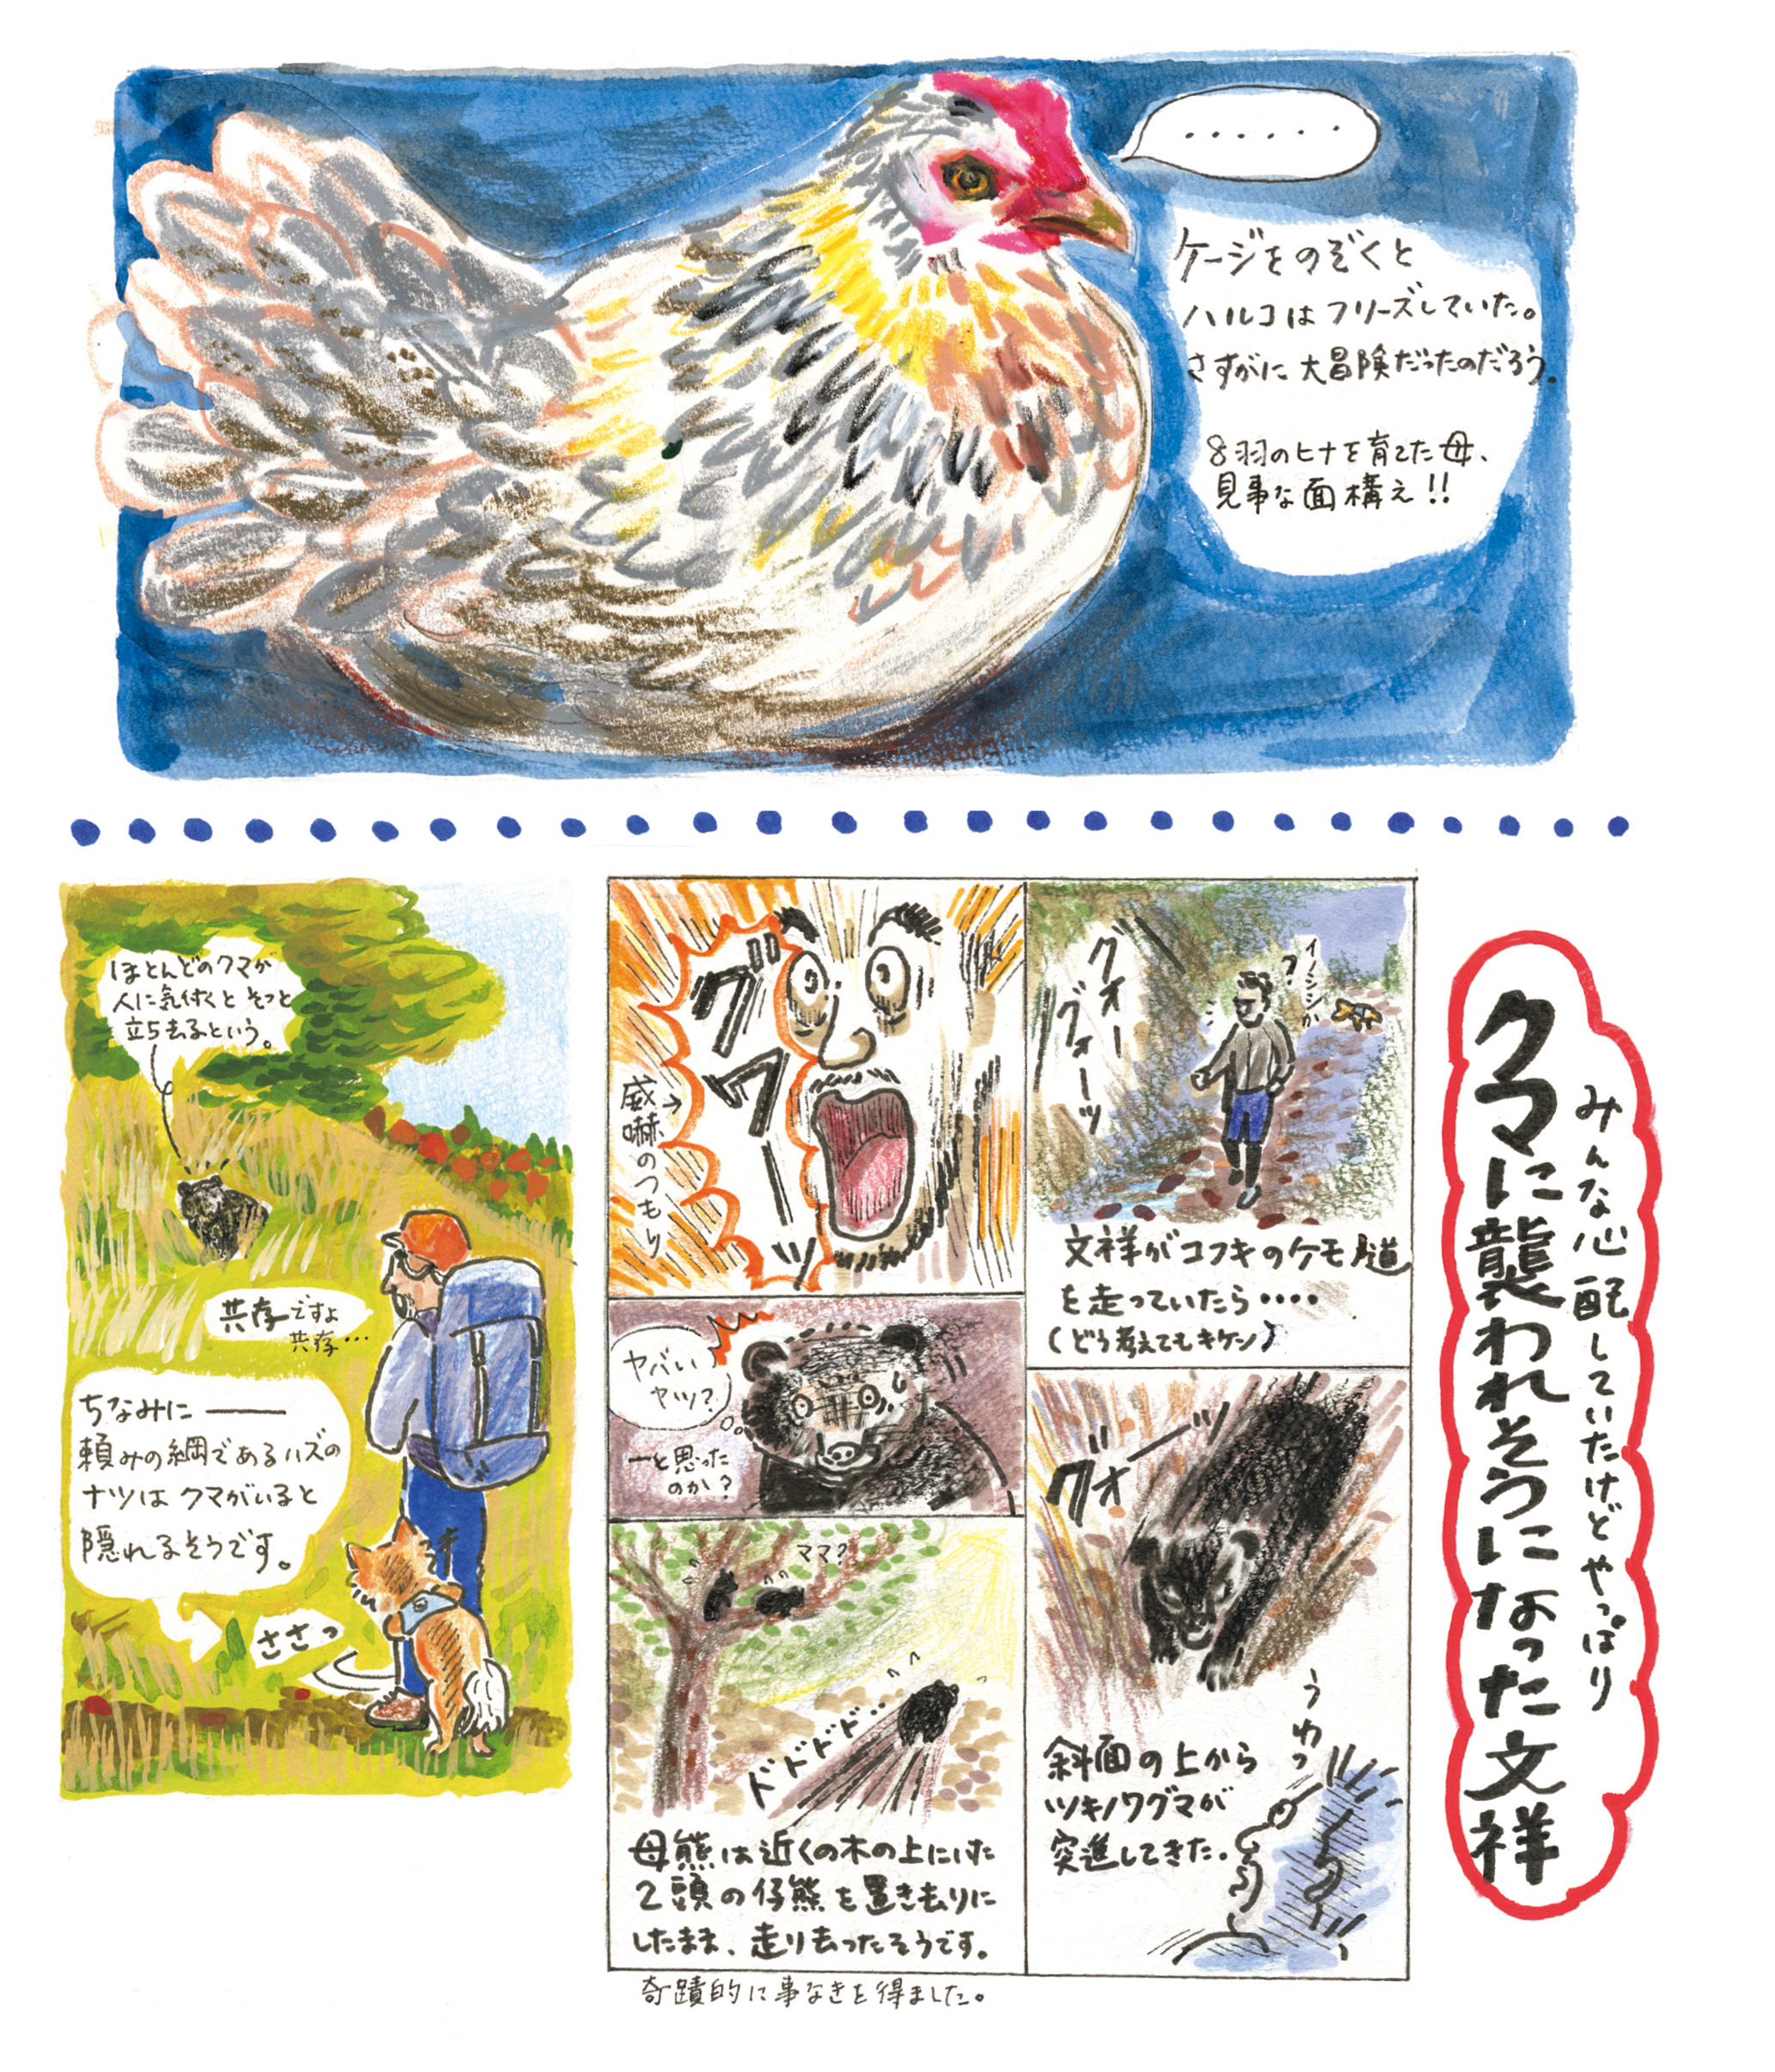 ・・・・・・
ケージをのぞくと
ハルコはフリーズしていた。
さすがに大冒険だったのだろう。
8羽のヒナを育てた母、
見事な面構え!!
みんな心配していたけどやっぱり
クマに襲われそうになった文祥
グォー
グォーッ
イノシシか
?
文祥がコフキのケモノ道
を走っていたら・・・・
(どう考えてもキケン)
グォーッ
うわっ
斜面の上から
ツキノワグマが
突進してきた。
グワーッ
威嚇のつもり
ヤバい
ヤツ?
ーと思った
のか?
ママ?
ドドドド…
母熊は近くの木の上にいた
2頭の仔熊を置き去りに
したまま、走り去ったそうです。
奇蹟的に事なきを得ました。
ほとんどのクマが
人に気付くとそっと
立ち去るという。
共存ですよ
共存…
ちなみに――
頼みの綱であるハズの
ナツはクマがいると
隠れるそうです。
ささっ